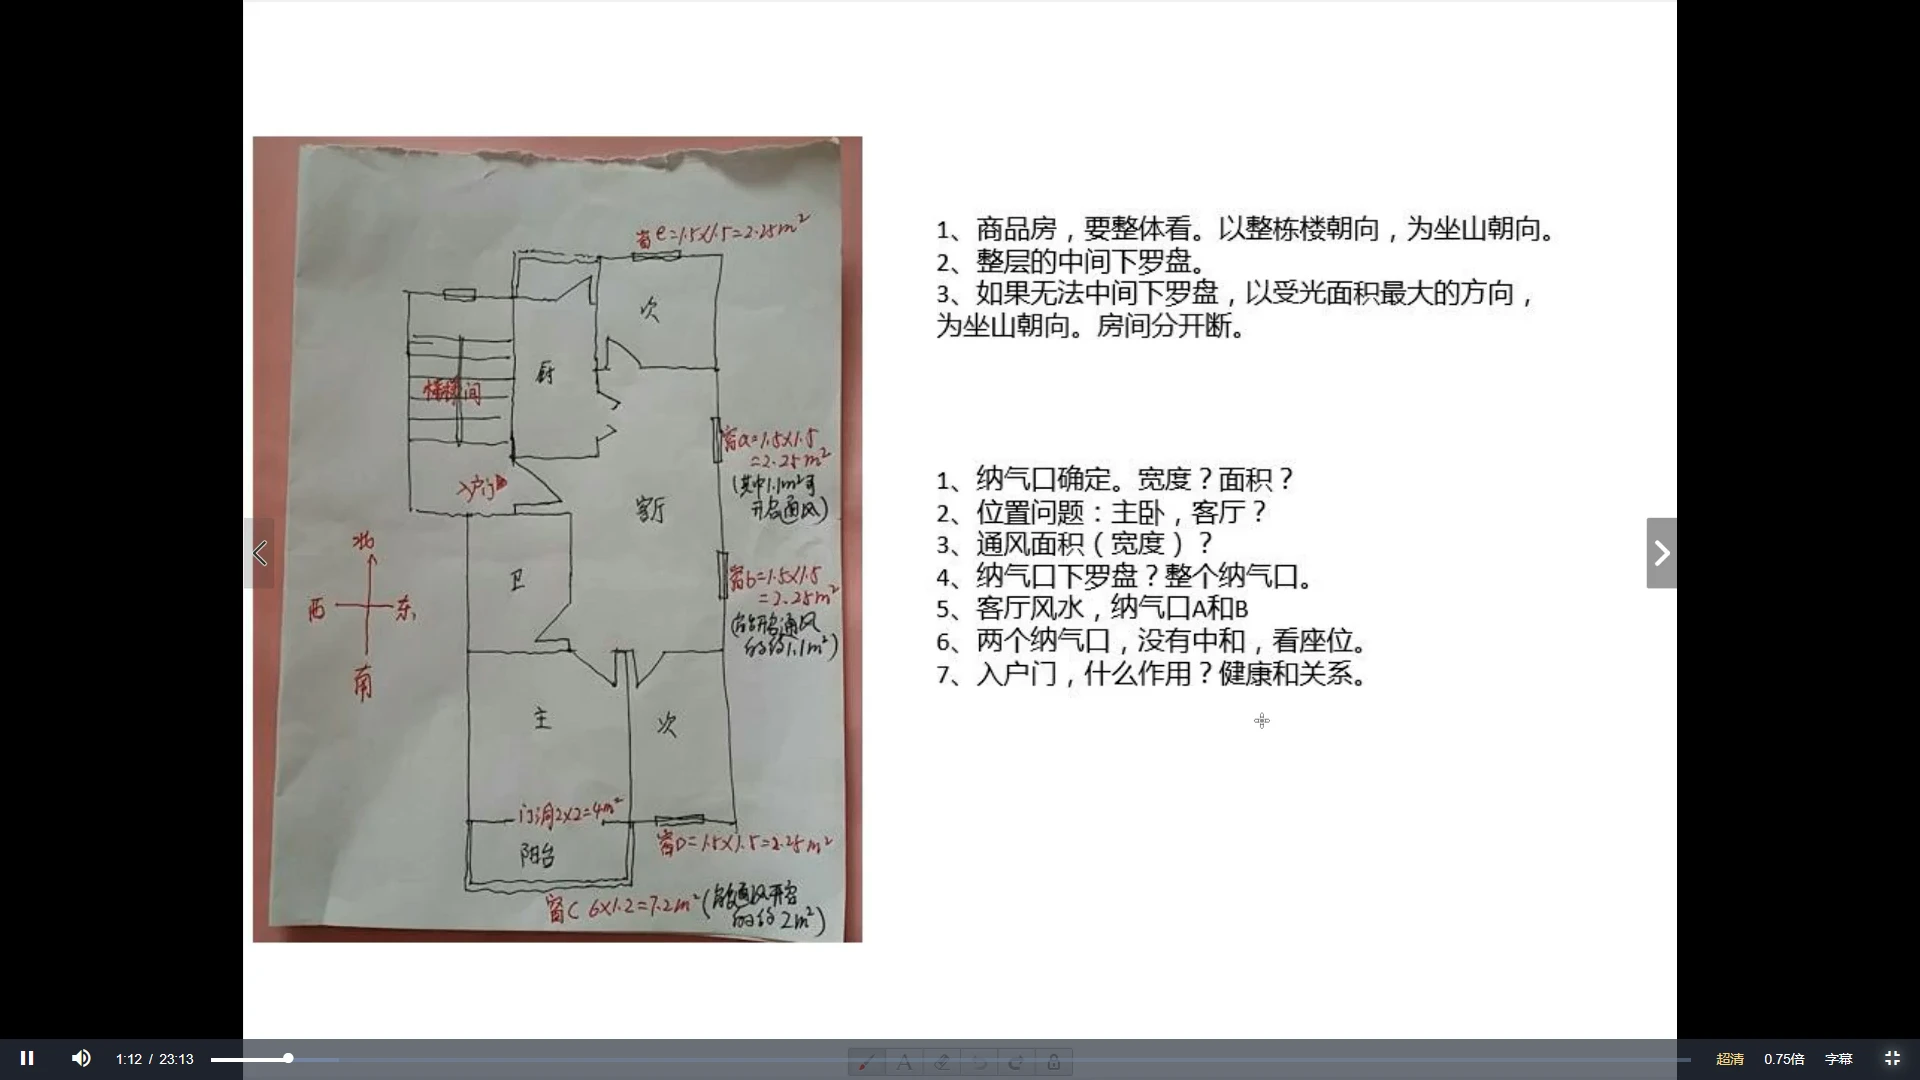 窗e=1.5×1.5=2.25m²
次
厨
楼梯间
窗a=1.5×1.5
=2.25m²
(其中1.1m²可
开启通风)
入户门
客厅
北
西
东
南
卫
窗b=1.5×1.5
=2.25m²
的约1.1m²)
主
次
门洞2×2=4m²
阳台
窗D=1.5×1.5=2.25m²
窗C 6×1.2=7.2m²(能通风开启
的约2m²)
1、商品房，要整体看。以整栋楼朝向，为坐山朝向。
2、整层的中间下罗盘。
3、如果无法中间下罗盘，以受光面积最大的方向，
为坐山朝向。房间分开断。
1、纳气口确定。宽度？面积？
2、位置问题：主卧，客厅？
3、通风面积（宽度）？
4、纳气口下罗盘？整个纳气口。
5、客厅风水，纳气口A和B
6、两个纳气口，没有中和，看座位。
7、入户门，什么作用？健康和关系。
1:12 / 23:13
A
超清
0.75倍
字幕